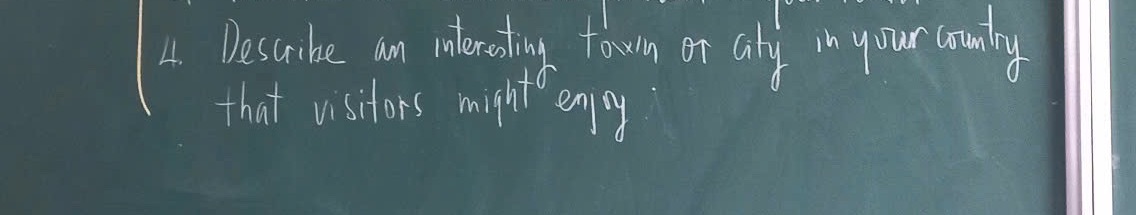 4. Describe an interesting town or city in your country
that visitors might enjoy.